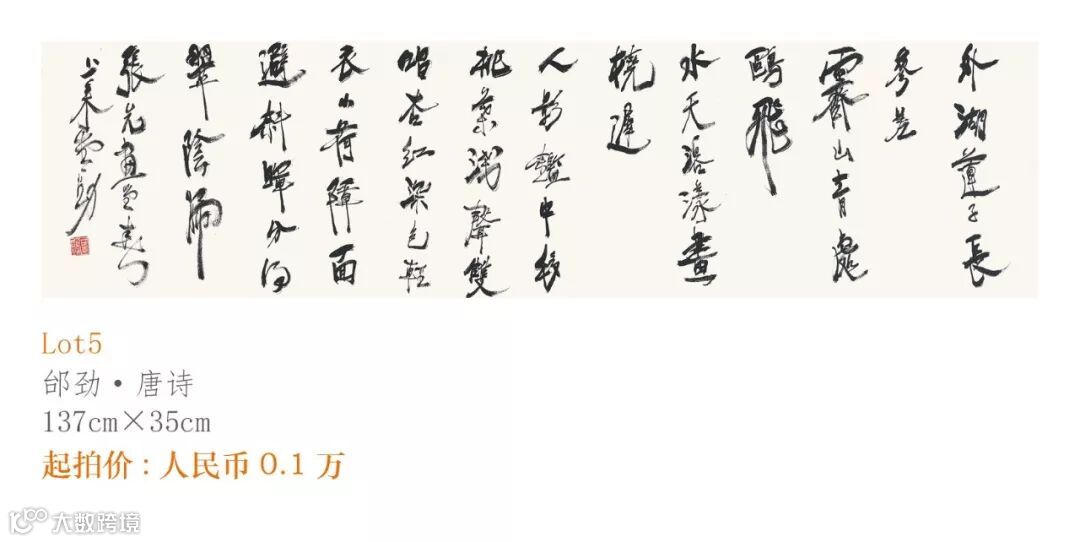 外湖蓮子長
參差
霽山青處
鷗飛
水天溶漾畫
橈遲
人影鑑中移
桃葉浅聲雙
唱杏紅深色輕
衣小荷障面
避斜暉分得
翠陰歸
張先畫堂春
Lot5
邰劲·唐诗
137cm×35cm
起拍价：人民币 0.1 万
大数跨境